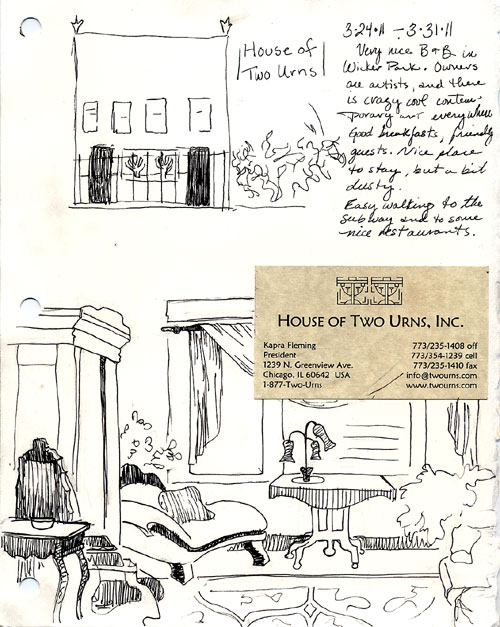 House of
Two Urns
3.24.11 - 3.31.11
Very nice B+B in
Wicker Park. Owners
are artists, and there
is crazy cool contem-
porary art everywhere.
Good breakfasts, friendly
guests. Nice place
to stay, but a bit
dusty.
Easy walking to the
subway and to some
nice restaurants.
HOUSE OF TWO URNS, INC.
Kapra Fleming
President
1239 N. Greenview Ave.
Chicago, IL 60642 USA
1-877-Two-Urns
773/235-1408 off
773/354-1239 cell
773/235-1410 fax
info@twourns.com
www.twourns.com